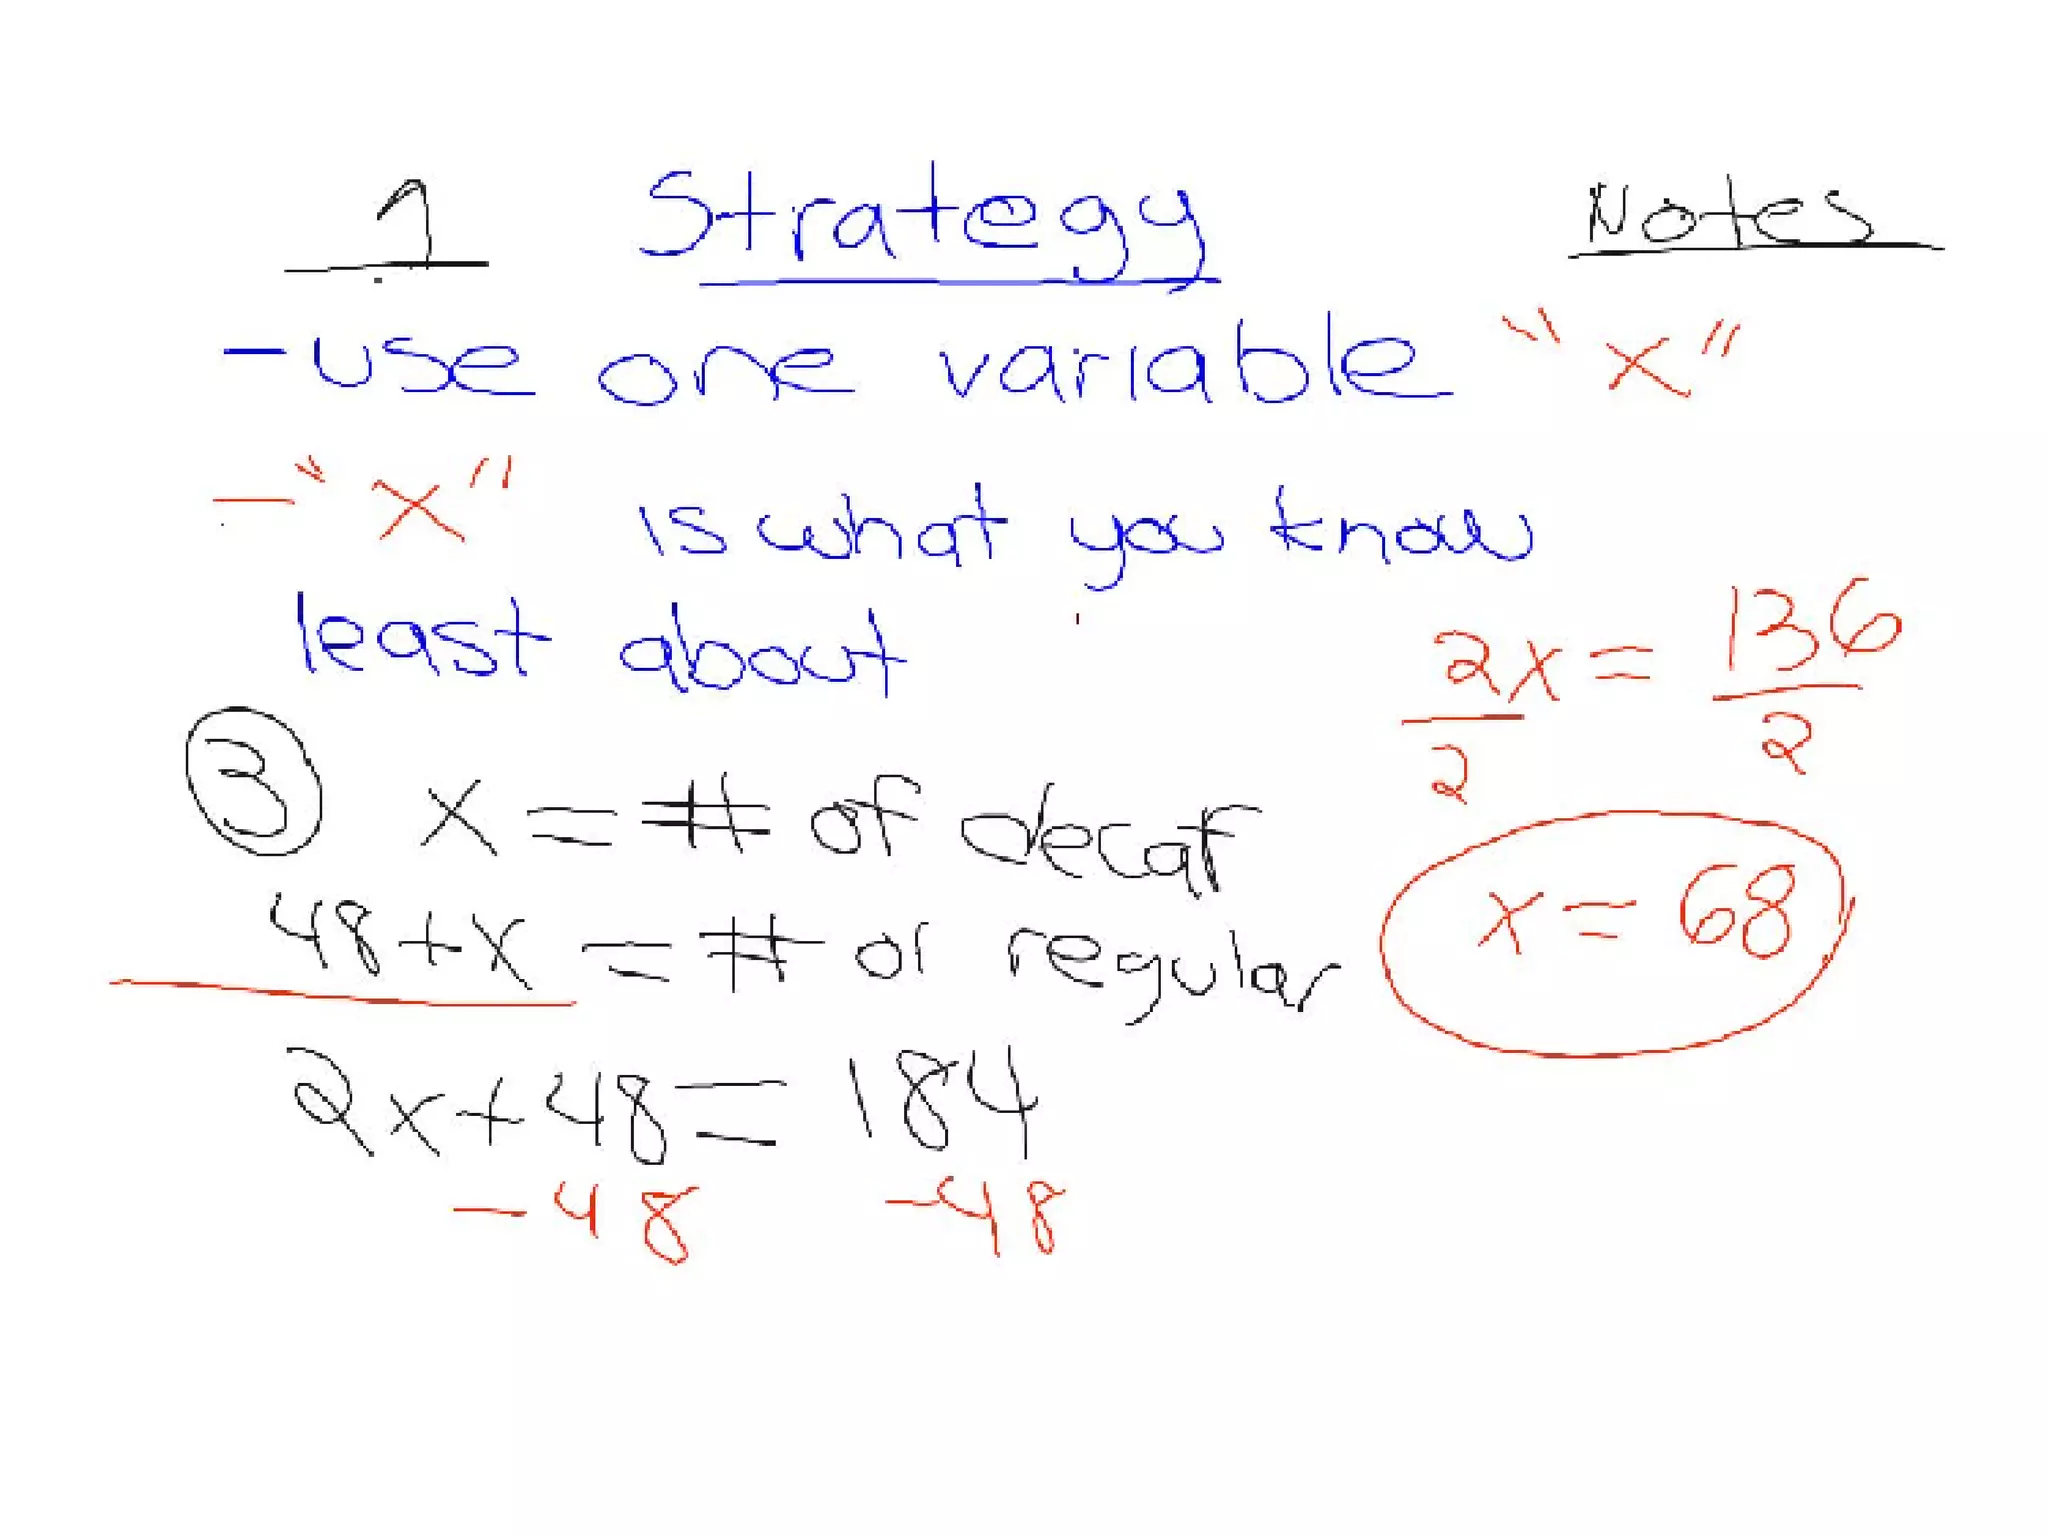 1 Strategy Notes
- use one variable "x"
- "x" is what you know
least about
③ x = # of decaf
48+x = # of regular
2x+48 = 184
-48 -48
2x = 136
2 2
x = 68